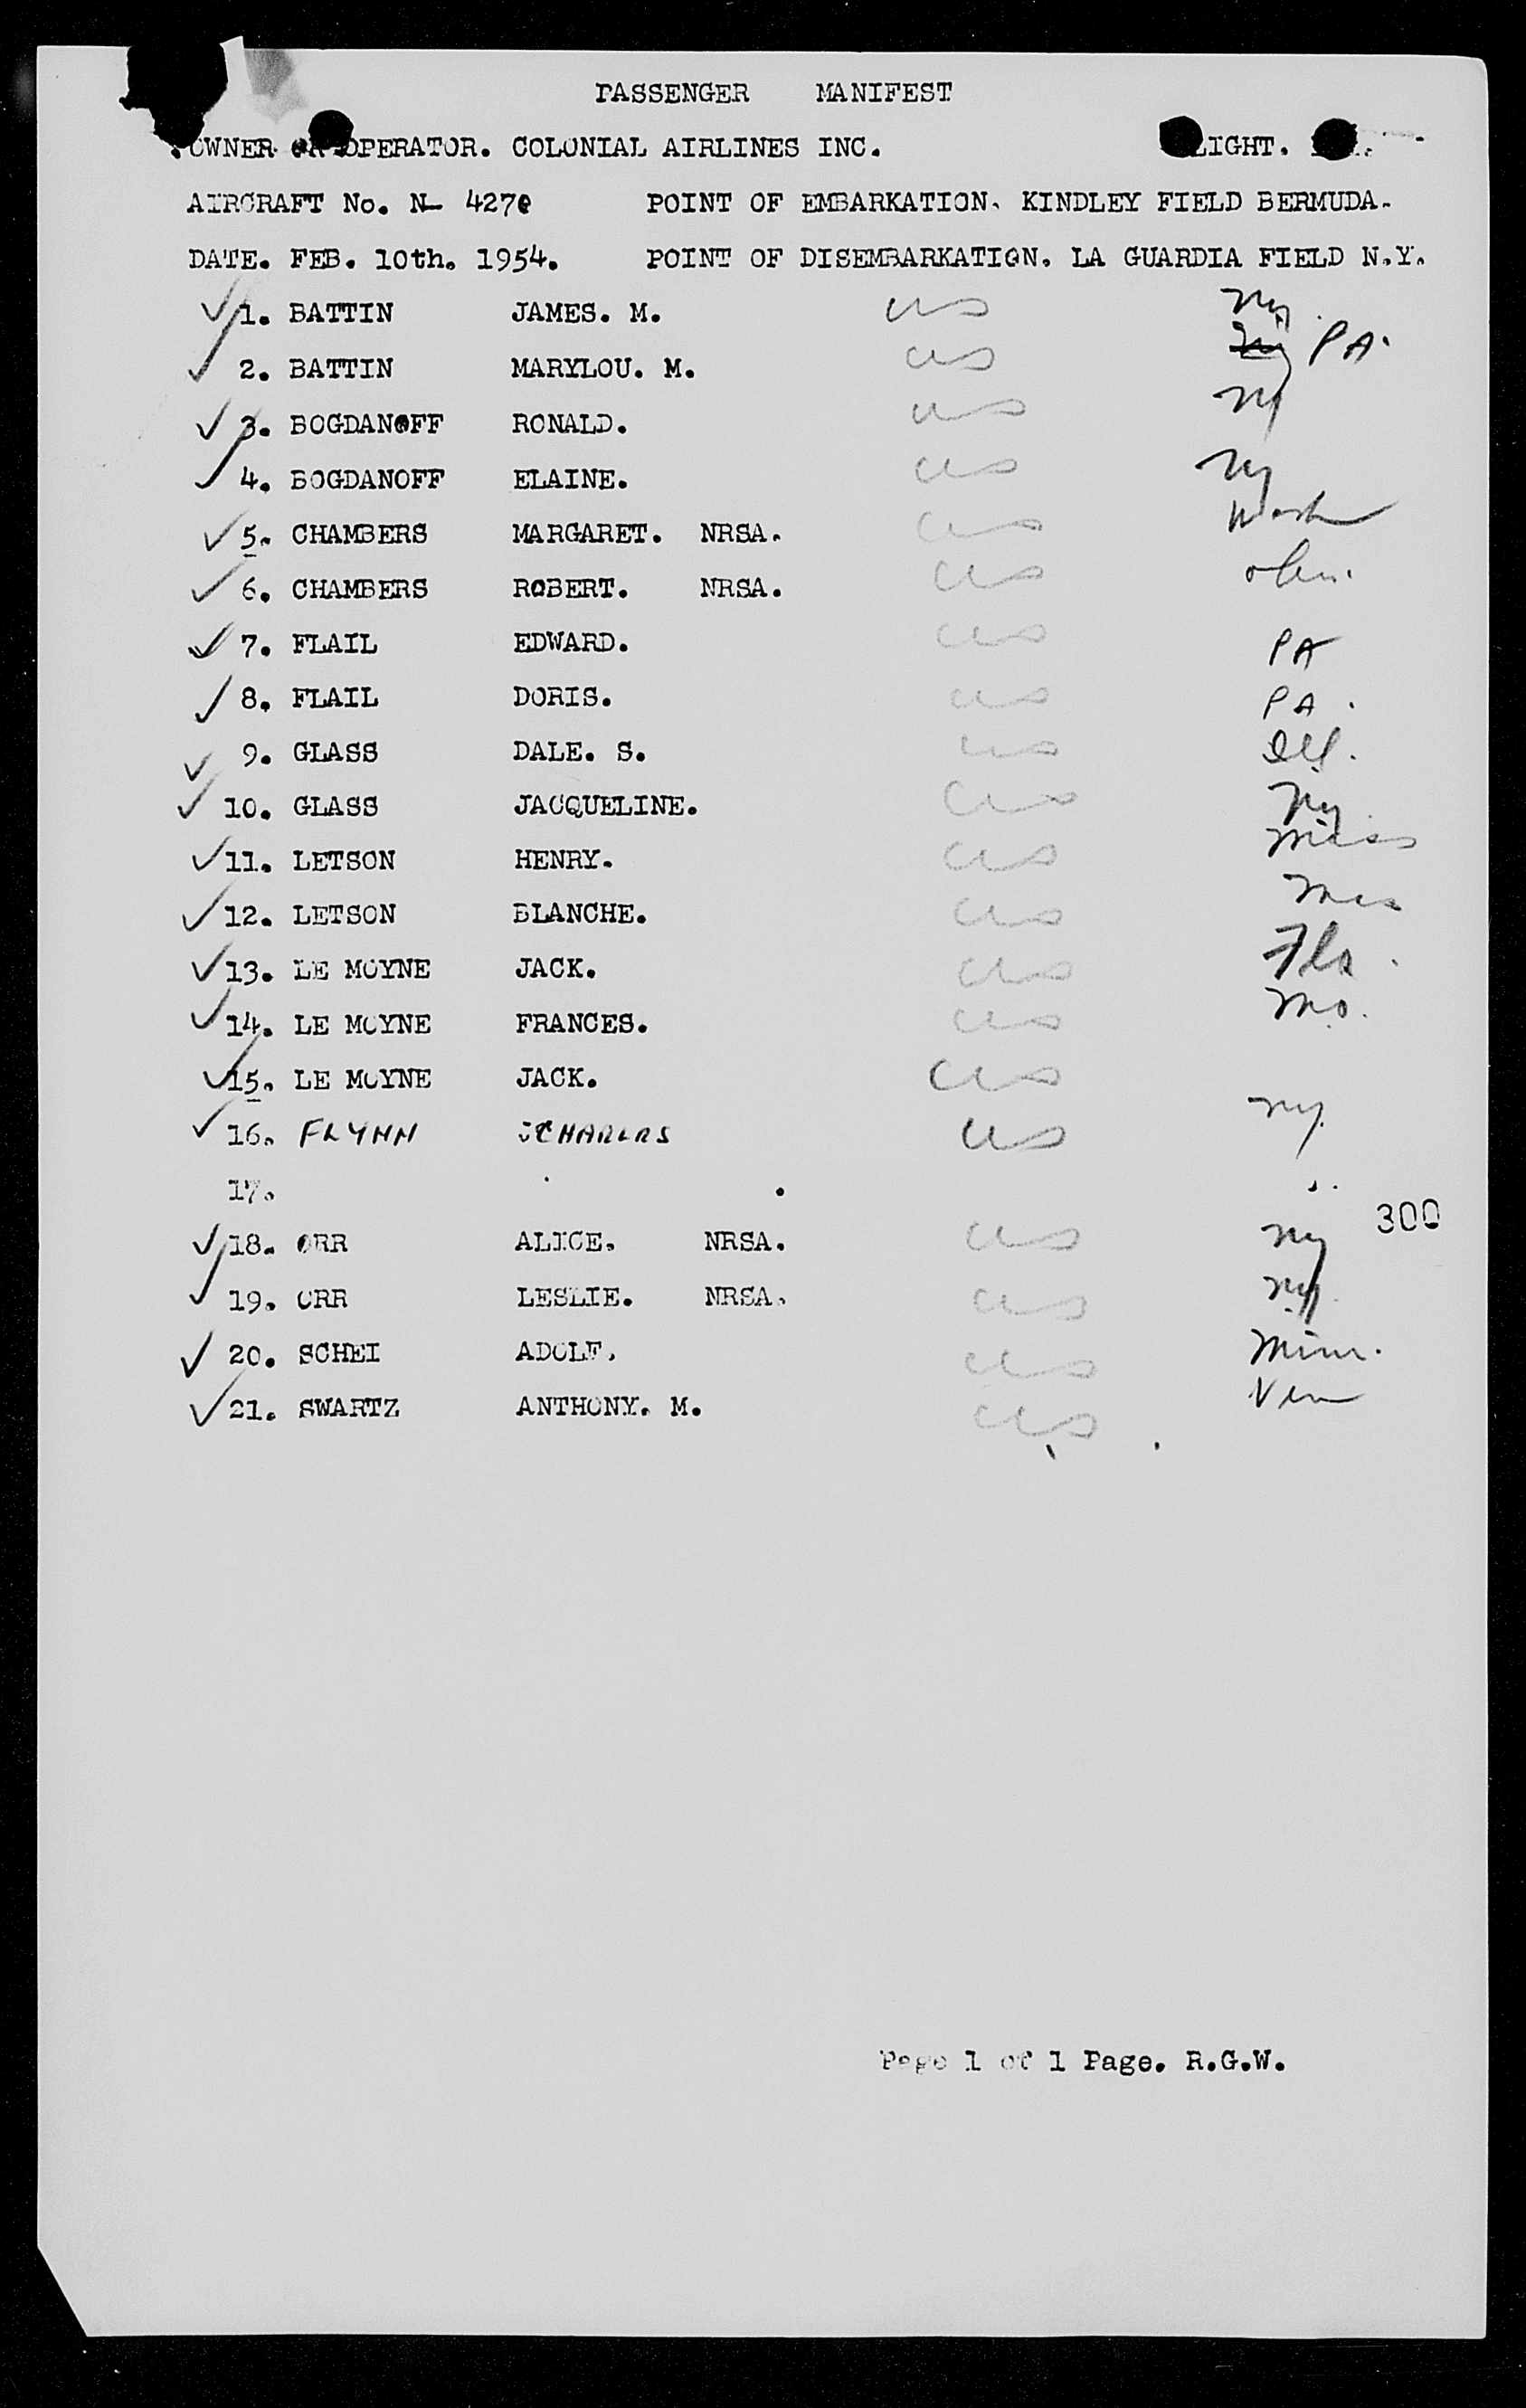 PASSENGER MANIFEST
OWNER OR OPERATOR. COLONIAL AIRLINES INC. FLIGHT.
AIRCRAFT No. N- 427e POINT OF EMBARKATION. KINDLEY FIELD BERMUDA.
DATE. FEB. 10th. 1954. POINT OF DISEMBARKATION. LA GUARDIA FIELD N.Y.
1. BATTIN JAMES. M. US NY
2. BATTIN MARYLOU. M. US NY PA.
3. BOGDANOFF RONALD. US NY
4. BOGDANOFF ELAINE. US NY
5. CHAMBERS MARGARET. NRSA. US Wash
6. CHAMBERS ROBERT. NRSA. US
7. FLAIL EDWARD. US PA
8. FLAIL DORIS. US PA.
9. GLASS DALE. S. US Ill.
10. GLASS JACQUELINE. US NY
11. LETSON HENRY. US Miss
12. LETSON BLANCHE. US
13. LE MOYNE JACK. US Fla.
14. LE MOYNE FRANCES. US Mo.
15. LE MOYNE JACK. US
16. FLYNN US NY.
17.
300
18. ORR ALICE. NRSA. US NY
19. ORR LESLIE. NRSA. US NY
20. SCHEI ADOLF. US Minn.
21. SWARTZ ANTHONY. M. US
Page 1 of 1 Page. R.G.W.